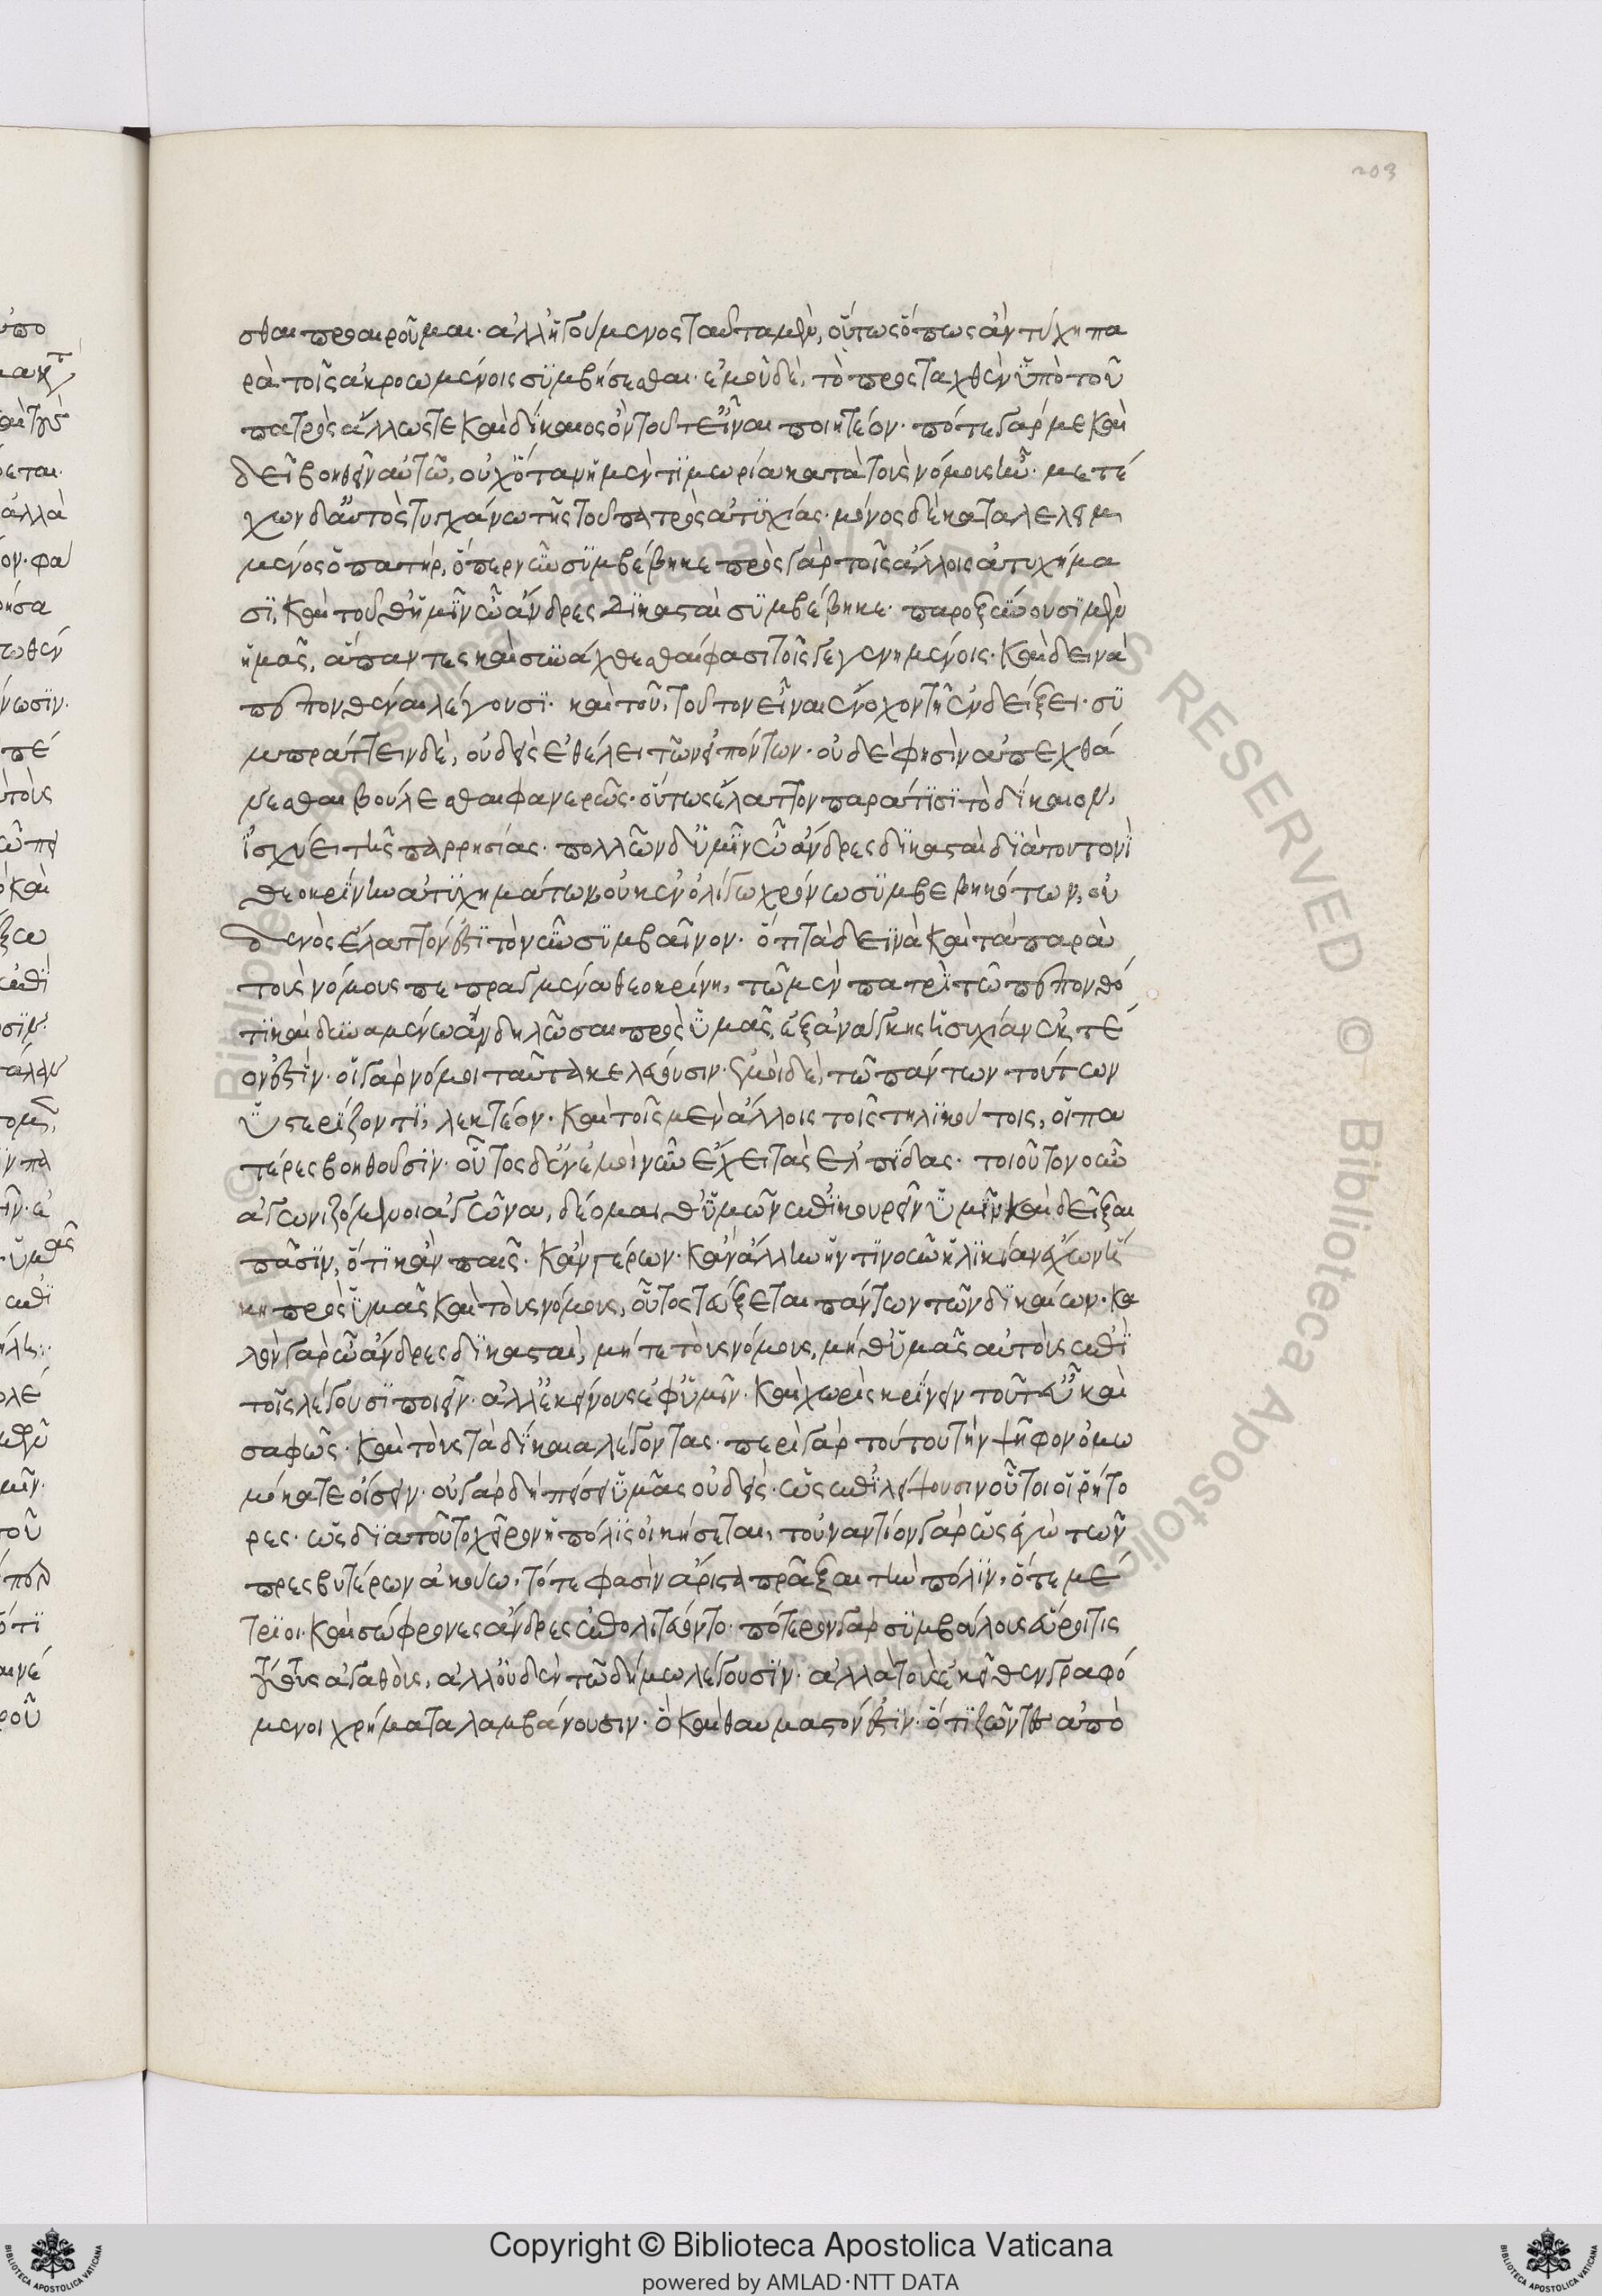 203
σθαι προαιροῦμαι· ἀλλ' ἡγούμενος ταῦτα μὲν, οὕτως ὅπως ἂν τύχη πα
ρὰ τοῖς ἀκροωμένοις συμβήσεσθαι· ἐμοῦ δὲ, τὸ προσταχθὲν ὑπὸ τοῦ
πατρὸς ἄλλως τε καὶ δίκαιος ὂν τοῦτ' εἶναι ποιητέον· πότε γάρ με καὶ
δεῖ βοηθεῖν αὐτῶ, οὐχ ὅταν ἡ μὲν τιμωρία κατὰ τοὺς νόμους ἦ· μετέ
χων δ' αὐτὸς τυγχάνω τῆς τοῦ πατρὸς ἀτυχίας· μόνος δὲ καταλελειμ
μένος ὁ πατήρ, ὅπερ νῦν συμβέβηκε πρὸς γὰρ τοῖς ἄλλοις ἀτυχήμα
σι, καὶ τοῦθ' ἡμῖν ὦ ἄνδρες δικασταὶ συμβέβηκε· παροξύνουσι μὲν
ἡμᾶς, ἅπαντες καὶ συνάχθεσθαι φασὶ τοῖς γεγενημένοις· καὶ δεινὰ
πεπονθέναι λέγουσι· καὶ τοῦ, τοῦτον εἶναι ἔνοχον τῆ ἐνδείξει· συ
μπράττειν δὲ, οὐδεὶς ἐθέλει τῶν εἰπόντων· οὐδέ φησιν ἀπεχθά
νεσθαι βούλεσθαι φανερῶς· οὕτως ἔλαττον παρά τισι τὸ δίκαιον,
ἰσχύει τῆς παρρησίας· πολλῶν δ' ὑμῖν ὦ ἄνδρες δικασταὶ διὰ τουτονὶ
θεοκρίνην ἀτυχημάτων οὐκ ἐν ὀλίγω χρόνω συμβεβηκότων, οὐ
δενὸς ἔλαττόν ἐστι τὸ νῦν συμβαῖνον· ὅτι τὰ δεινὰ καὶ τὰ παρὰ
τοὺς νόμους πεπραγμένα θεοκρίνη, τῶ μὲν πατρὶ τῶ πεπονθό
τι καὶ δυναμένω ἂν δηλῶσαι πρὸς ὑμᾶς, ἐξ ἀνάγκης ἡσυχίαν ἑκτέ
ον ἐστίν· οἱ γὰρ νόμοι ταῦτα κελεύουσιν· ἐμοὶ δὲ, τῶ πάντων τούτων
ὑστερίζοντι, λεκτέον· καὶ τοῖς μὲν ἄλλοις τοῖς τηλικούτοις, οἱ πα
τέρες βοηθοῦσιν· οὗτος δ' ἐν ἐμοὶ νῦν ἔχει τὰς ἐλπίδας· τοιοῦτον οὖν
ἀγωνιζόμενοι ἀγῶνα, δεόμαιθ' ὑμῶν ἐπικουρεῖν ὑμῖν καὶ δεῖξαι
πᾶσιν, ὅτι κἂν παῖς· κἂν γέρων· κἂν ἄλλην ἥντινοῦν ἡλικίαν ἔχων ἥ
κη πρὸς ὑμᾶς κατὰ τοὺς νόμους, οὗτος τεύξεται πάντων τῶν δικαίων· κα
λὸν γὰρ ὦ ἄνδρες δικασταὶ, μήτε τοὺς νόμους, μήθ' ὑμᾶς αὐτοὺς ἐπὶ
τοῖς λέγουσι ποιεῖν· ἀλλ' ἐκείνους ἐφ' ὑμῖν· καὶ χωρὶς κρίνειν τοῦτ' εὖ καὶ
σαφῶς· καὶ τοὺς τὰ δίκαια λέγοντας· περὶ γὰρ τούτου τὴν ψῆφον ὀμω
μόκατε οἴσειν· οὐ γὰρ δὴ πείσει ὑμᾶς οὐδεὶς· ὡς ἐπιλείψουσιν οὗτοι οἱ ῥήτο
ρες· ὡς διὰ τοῦτο χεῖρον ἡ πόλις οἰκήσεται, τοὐναντίον γὰρ ὡς ἐγὼ τῶν
πρεσβυτέρων ἀκούω, τότε φασὶν ἄριστα πρᾶξαι τὴν πόλιν, ὅτε μέ
τριοι καὶ σώφρονες ἄνδρες ἐπολιτεύοντο· πότερον γὰρ συμβούλους εὕροι τις
τούτους ἀγαθοὺς, ἀλλ' οὐδὲν τῶ δήμω λέγουσιν· ἀλλὰ τοὺς ἐκεῖθεν γραφό
μενοι χρήματα λαμβάνουσιν· ὃ καὶ θαυμαστόν ἐστιν· ὅτι ζῶντες ἀπὸ